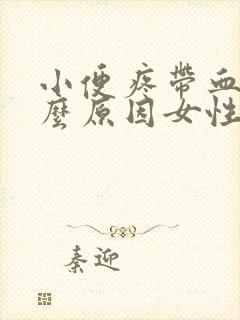 小便疼帶血
麼原因女性
秦迎